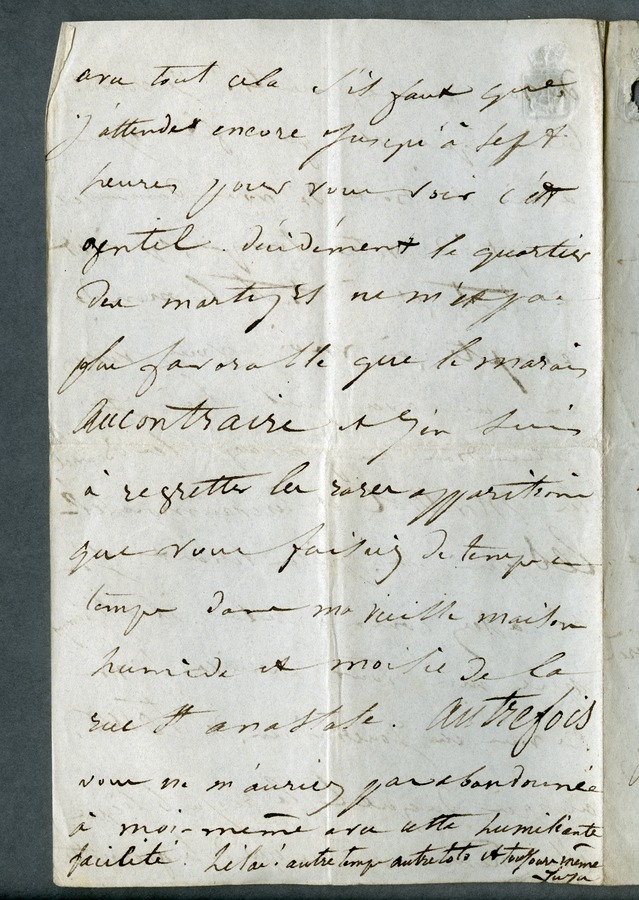 avec tout cela s'il faut que
j'attende encore jusqu'à sept
heures pour vous voir c'est
gentil. décidément le quartier
des martyrs ne m'est pas
plus favorable que le marais
Aucontraire et j'en suis
à regretter les rares apparitions
que vous faisiez de temps en
temps dans ma vieille maison
humide et moisie de la
rue St anastase. Autrefois
vous ne m'auriez pas abandonnée
à moi-même avec cette humiliante
facilité. hélas! autre temps autre toto et toujours même
Juju